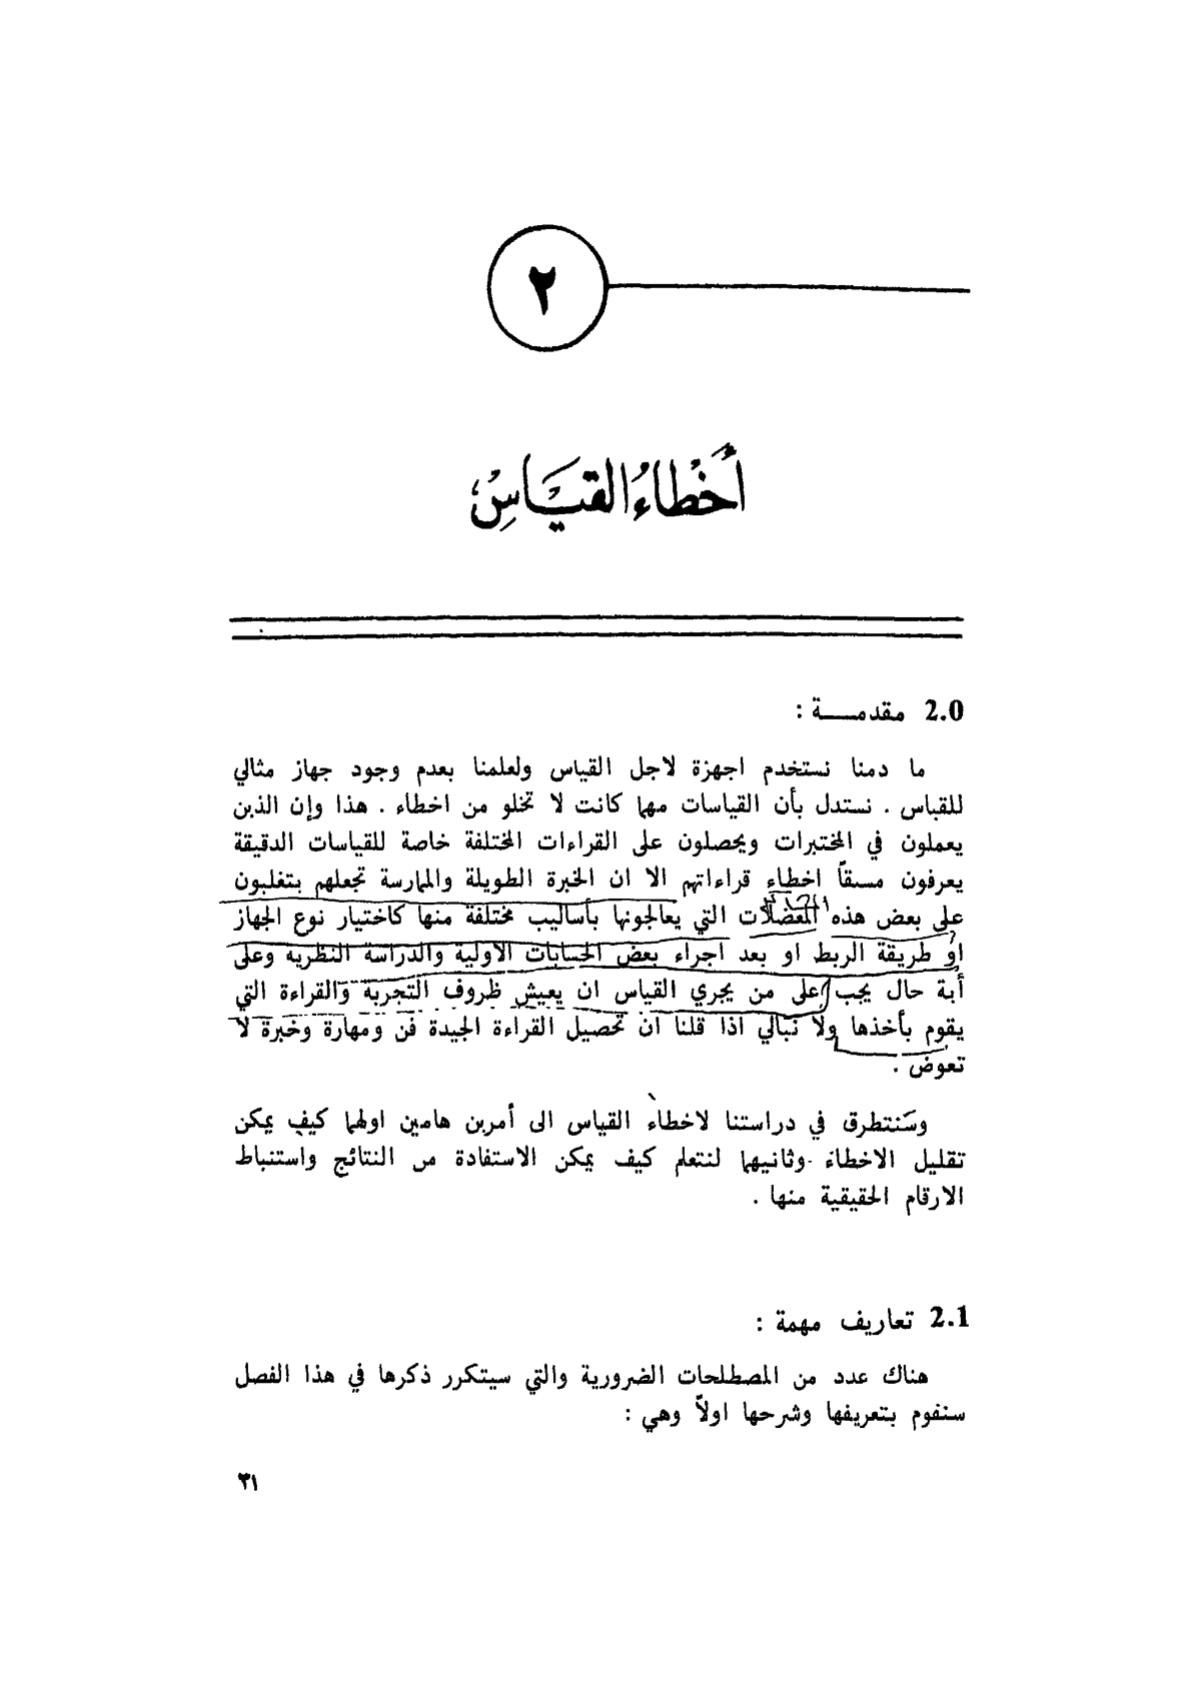 ٢
أَخْطَاءُ القيَاسِ
2.0 مقدمـــة :
ما دمنا نستخدم اجهزة لاجل القياس ولعلمنا بعدم وجود جهاز مثالي
للقياس . نستدل بأن القياسات مهما كانت لا تخلو من اخطاء . هذا وإن الذين
يعملون في المختبرات ويحصلون على القراءات المختلفة خاصة للقياسات الدقيقة
يعرفون مسبقاً اخطاء قراءاتهم الا ان الخبرة الطويلة والممارسة تجعلهم يتغلبون
على بعض هذه المعضلات التي يعالجونها بأساليب مختلفة منها كاختيار نوع الجهاز
او طريقة الربط او بعد اجراء بعض الحسابات الاولية والدراسة النظرية وعلى
أية حال يجب على من يجري القياس ان يعيش ظروف التجربة والقراءة التي
يقوم بأخذها ولا نبالي اذا قلنا ان تحصيل القراءة الجيدة فن ومهارة وخبرة لا
تعوض .
وسنتطرق في دراستنا لاخطاء القياس الى أمرين هامين اولهما كيف يمكن
تقليل الاخطاء وثانيهما لنتعلم كيف يمكن الاستفادة من النتائج واستنباط
الارقام الحقيقية منها .
2.1 تعاريف مهمة :
هناك عدد من المصطلحات الضرورية والتي سيتكرر ذكرها في هذا الفصل
سنقوم بتعريفها وشرحها اولاً وهي :
٣١